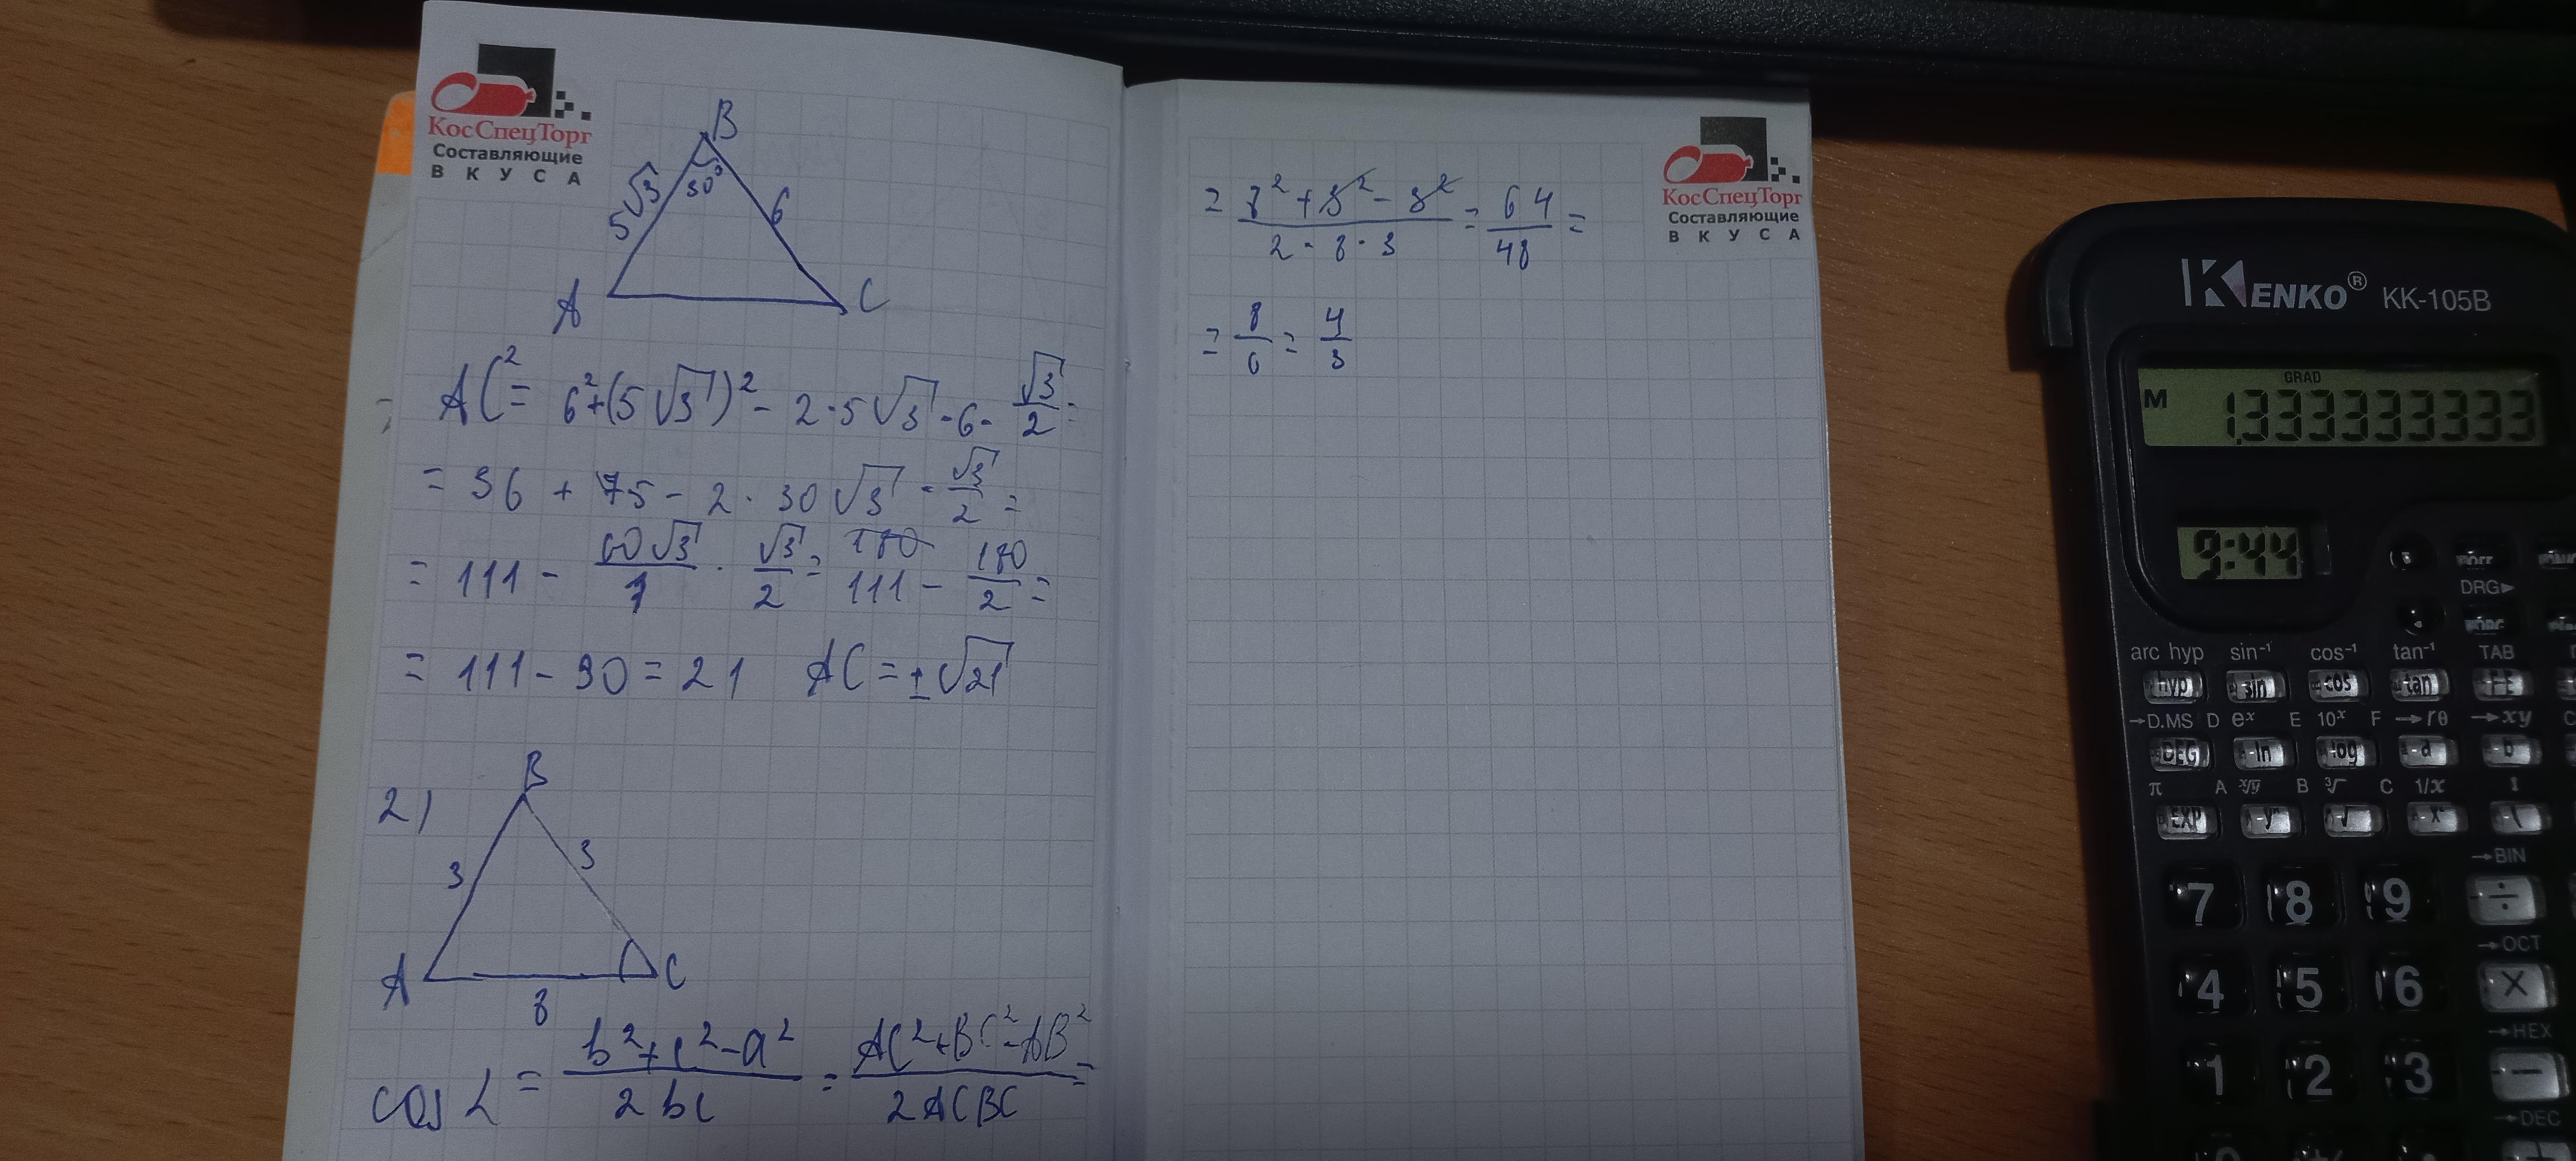 КосСпецТорг
Составляющие
ВКУСА
B
5√3
30°
6
A
C
AC² = 6²+(5√3)² - 2·5√3·6·√3/2 =
= 36 + 75 - 2·30√3·√3/2 =
= 111 - 60√3/1 · √3/2 = 111 - 180/2 =
= 111 - 90 = 21 AC = ±√21
2)
B
3
3
A
C
8
cos α = (b²+c²-a²)/(2bc) = (AC²+BC²-AB²)/(2ACBC) =
КосСпецТорг
Составляющие
ВКУСА
= (8²+3²-3²)/(2·8·3) = 64/48 =
= 8/6 = 4/3
KENKO® KK-105B
GRAD
M 1.333333333
9:44
DRG▶
arc hyp sin⁻¹ cos⁻¹ tan⁻¹ TAB
hyp sin cos tan
→D.MS D eˣ E 10ˣ F →rθ →xy
DEG ln log a b
π A ˣ√y B ³√ C 1/x
EXP √
→BIN
7 8 9 ÷
→OCT
4 5 6 ×
→HEX
1 2 3 −
→DEC